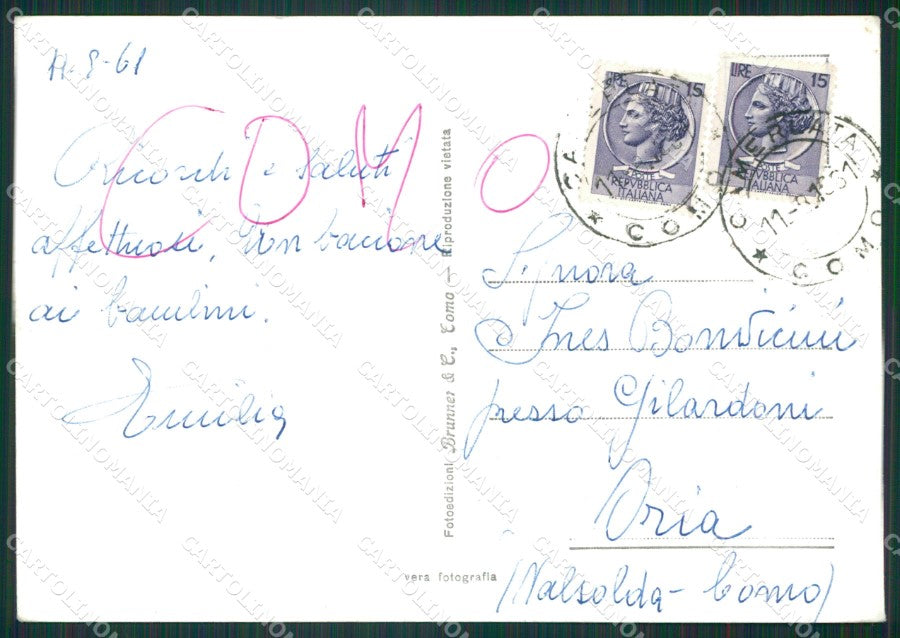 11-8-61
Ricordi e saluti
affettuosi, Un bacione
ai bambini.
Emilia
COMO
Fotoedizioni Brunner & C., Como — Riproduzione vietata
vera fotografia
LIRE 15
POSTE
REPVBBLICA
ITALIANA
LIRE 15
REPVBBLICA
ITALIANA
COMO
CAMERLATA
11-8-1961
COMO
Signora
Ines Bonvicini
presso Gilardoni
Oria
(Valsolda-Como)
CARTOLINOMANIA